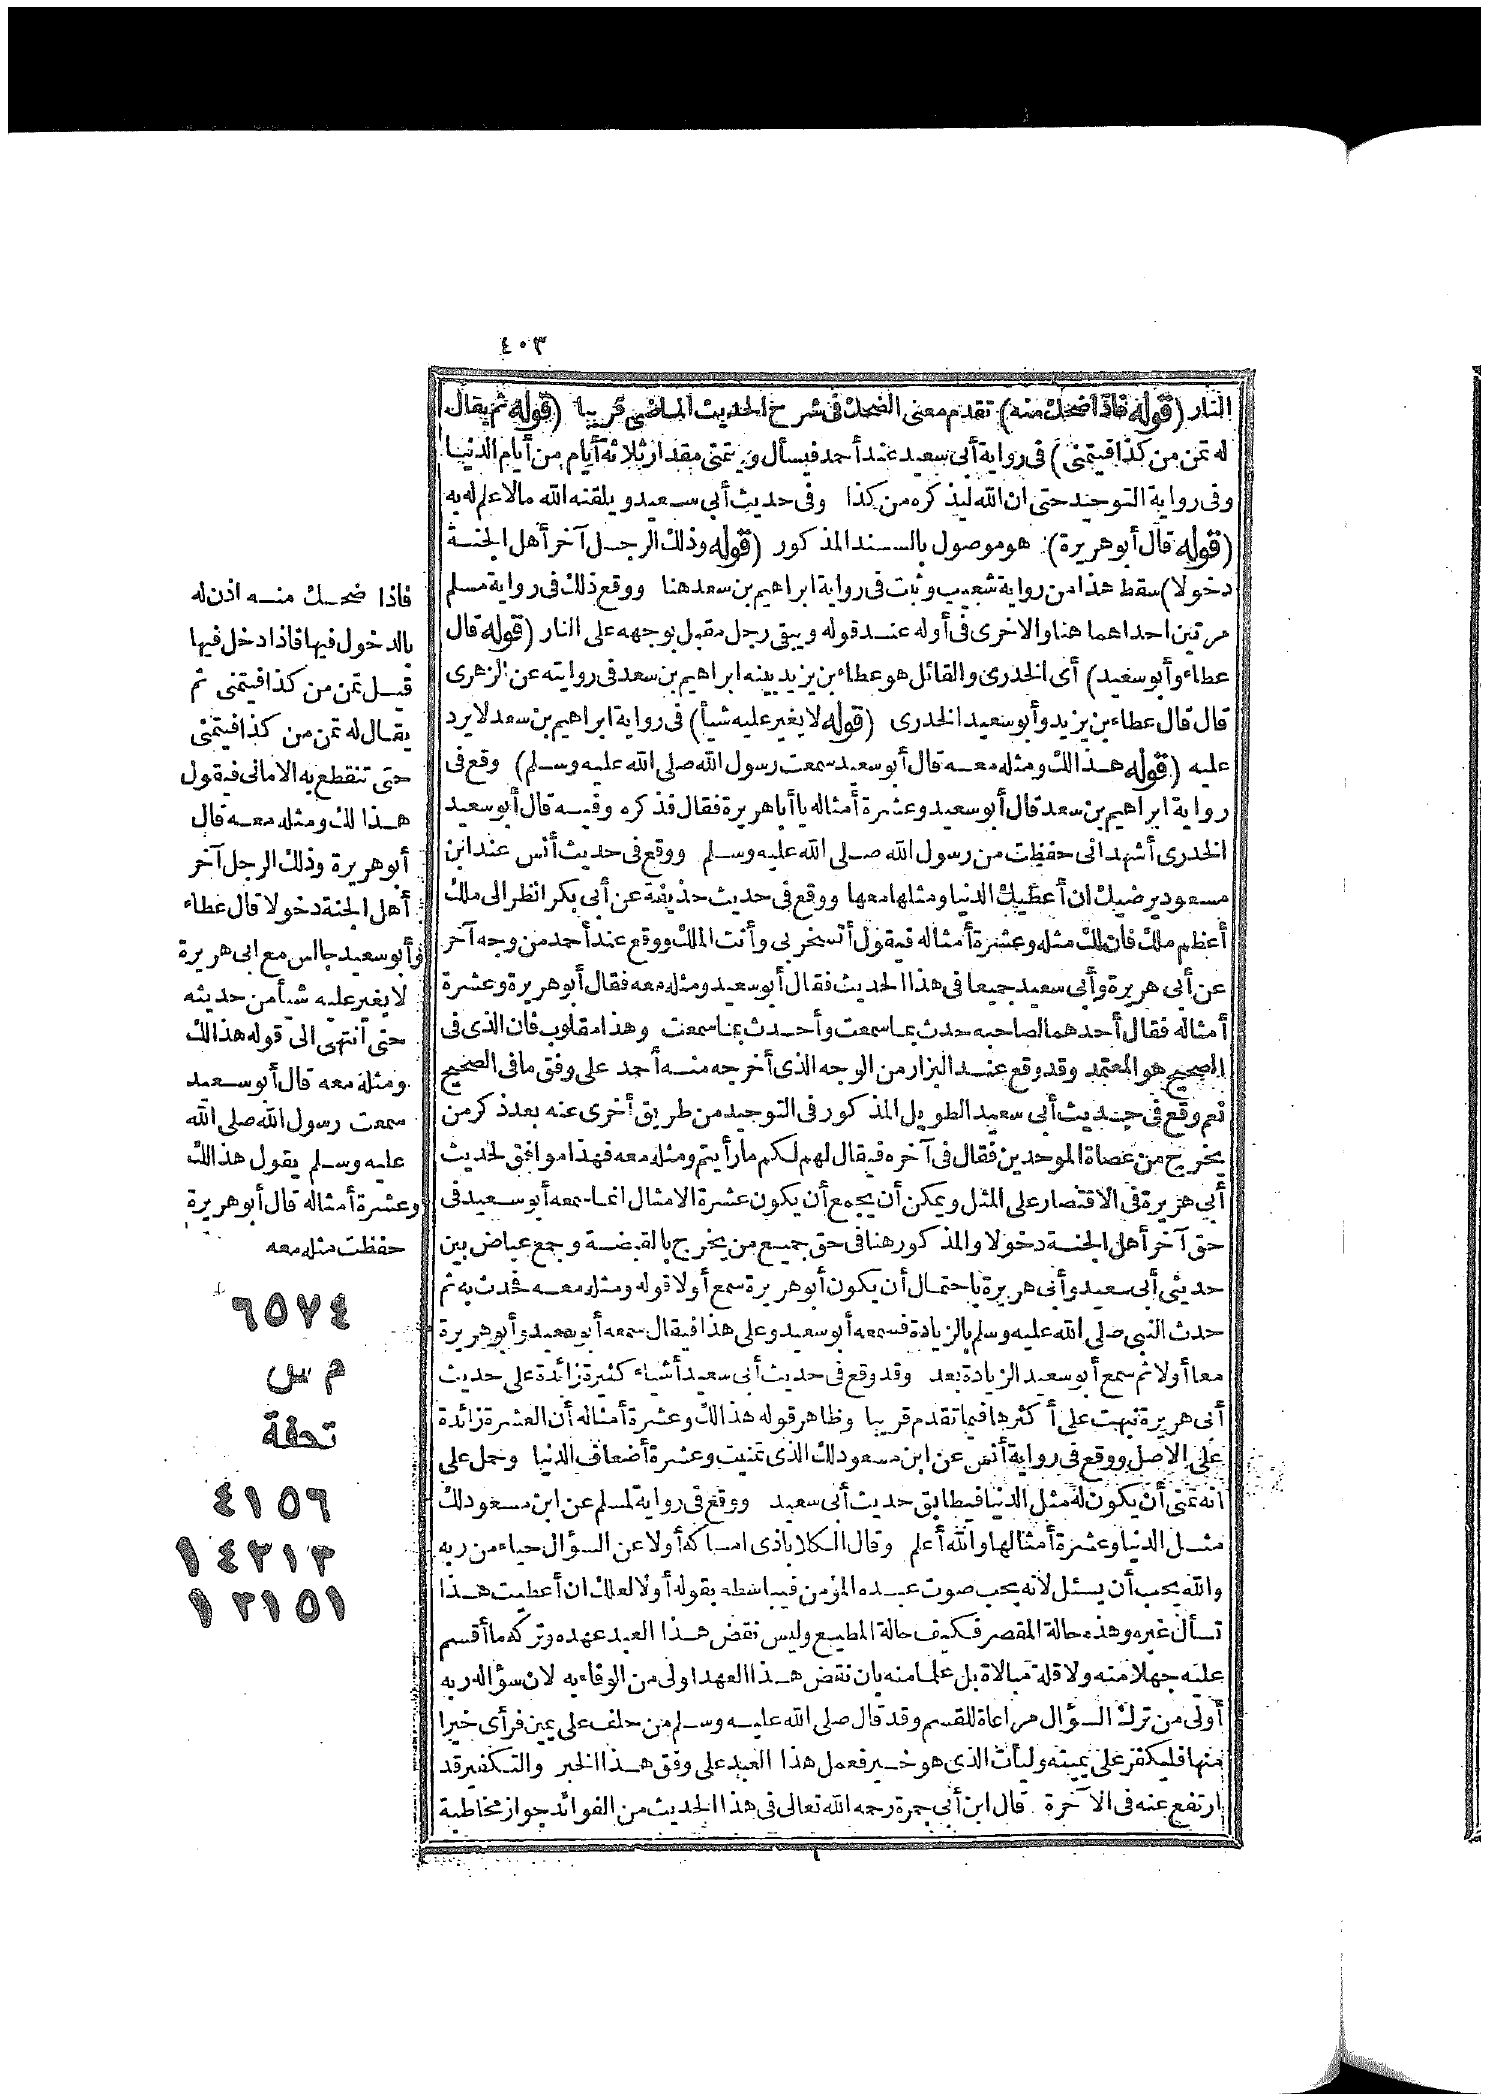 ٤٠٣
النار (قوله فاذا ضحك منه) تقدم معنى الضحك فى شرح الحديث الماضى قريبا (قوله ثم يقال
له تمن من كذا فيتمنى) فى رواية أبى سعيد عند أحمد فيسأل ويتمنى مقدار ثلاثة أيام من أيام الدنيا
وفى رواية التوحيد حتى ان الله ليذكره من كذا وفى حديث أبى سعيد ويلقنه الله مالا علم له به
(قوله قال أبو هريرة) هو موصول بالسند المذكور (قوله وذلك الرجل آخر أهل الجنة
دخولا) سقط هذا من رواية شعيب وثبت فى رواية ابراهيم بن سعد هنا ووقع ذلك فى رواية مسلم
مرتين احداهما هنا والاخرى فى أوله عند قوله ويبقى رجل مقبل بوجهه على النار (قوله قال
عطاء وأبو سعيد) أى الخدرى والقائل هو عطاء بن يزيد بينه ابراهيم بن سعد فى روايته عن الزهرى
قال قال عطاء بن يزيد وأبو سعيد الخدرى (قوله لا يغير عليه شيأ) فى رواية ابراهيم بن سعد لا يرد
عليه (قوله هذا لك ومثله معه قال أبو سعيد سمعت رسول الله صلى الله عليه وسلم) وقع فى
رواية ابراهيم بن سعد قال أبو سعيد وعشرة أمثاله يا أبا هريرة فقال فذكره وفيه قال أبو سعيد
الخدرى أشهد انى حفظت من رسول الله صلى الله عليه وسلم ووقع فى حديث أنس عند ابن
مسعود يرضيك ان أعطيك الدنيا ومثلها معها ووقع فى حديث حذيفة عن أبى بكر انظر الى ملك
أعظم ملك فان لك مثله وعشرة أمثاله فيقول أتسخر بى وأنت الملك ووقع عند أحمد من وجه آخر
عن أبى هريرة وأبى سعيد جميعا فى هذا الحديث فقال أبو سعيد ومثله معه فقال أبو هريرة وعشرة
أمثاله فقال أحدهما لصاحبه حدث بما سمعت وأحدث بما سمعت وهذا مقلوب فان الذى فى
الصحيح هو المعتمد وقد وقع عند البزار من الوجه الذى أخرجه منه أحمد على وفق ما فى الصحيح
نعم وقع فى حديث أبى سعيد الطويل المذكور فى التوحيد من طريق أخرى عنه بعد ذكر من
يخرج من عصاة الموحدين فقال فى آخره فيقال لهم لكم ما رأيتم ومثله معه فهذا موافق لحديث
أبى هريرة فى الاقتصار على المثل ويمكن أن يجمع أن يكون عشرة الامثال انما سمعه أبو سعيد فى
حق آخر أهل الجنة دخولا والمذكور هنا فى حق جميع من يخرج بالقبضة وجمع عياض بين
حديثى أبى سعيد وأبى هريرة باحتمال أن يكون أبو هريرة سمع أولا قوله ومثله معه فحدث به ثم
حدث النبى صلى الله عليه وسلم بالزيادة فسمعه أبو سعيد وعلى هذا فيقال سمعه أبو سعيد وأبو هريرة
معا أولا ثم سمع أبو سعيد الزيادة بعد وقد وقع فى حديث أبى سعيد أشياء كثيرة زائدة على حديث
أبى هريرة نبهت على أكثرها فيما تقدم قريبا وظاهر قوله هذا لك وعشرة أمثاله أن العشرة زائدة
على الاصل ووقع فى رواية أنس عن ابن مسعود لك الذى تمنيت وعشرة أضعاف الدنيا وحمل على
انه تمنى أن يكون له مثل الدنيا فيطابق حديث أبى سعيد ووقع فى رواية لمسلم عن ابن مسعود لك
مثل الدنيا وعشرة أمثالها والله أعلم وقال الكلاباذى امساكه أولا عن السؤال حياء من ربه
والله يحب أن يسئل لانه يحب صوت عبده المؤمن فيباسطه بقوله أولا لعلك ان أعطيت هذا
تسأل غيره وهذه حالة المقصر فكيف حالة المطيع وليس نقض هذا العبد عهده وتركه ما أقسم
عليه جهلا منه ولا قلة مبالاة بل علما منه بان نقض هذا العهد اولى من الوفاء به لان سؤاله ربه
أولى من ترك السؤال مراعاة للقسم وقد قال صلى الله عليه وسلم من حلف على يمين فرأى خيرا
منها فليكفر على يمينه وليأت الذى هو خير فعمل هذا العبد على وفق هذا الخبر والتكفير قد
ارتفع عنه فى الآخرة قال ابن أبى جمرة رحمه الله تعالى فى هذا الحديث من الفوائد جواز مخاطبة
فاذا ضحك منه اذن له
بالدخول فيها فاذا دخل فيها
قيل تمن من كذا فيتمنى ثم
يقال له تمن من كذا فيتمنى
حتى تنقطع به الامانى فيقول
هذا لك ومثله معه قال
أبو هريرة وذلك الرجل آخر
أهل الجنة دخولا قال عطاء
وأبو سعيد جالس مع ابى هريرة
لا يغير عليه شيأ من حديثه
حتى انتهى الى قوله هذا لك
ومثله معه قال أبو سعيد
سمعت رسول الله صلى الله
عليه وسلم يقول هذا لك
وعشرة أمثاله قال أبو هريرة
حفظت مثله معه
٦٥٧٤
م س
تحفة
٤١٥٦
١٤٢١٣
١٣١٥١